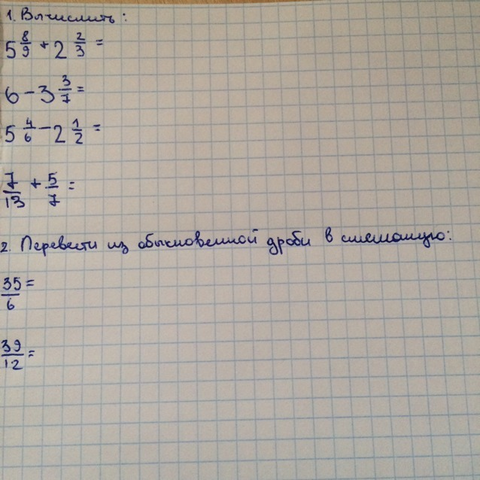 1. Вычислить:
5 8/9 + 2 2/3 =
6 - 3 3/7 =
5 4/6 - 2 1/2 =
7/13 + 5/7 =
2. Перевести из обыкновенной дроби в смешаную:
35/6 =
39/12 =